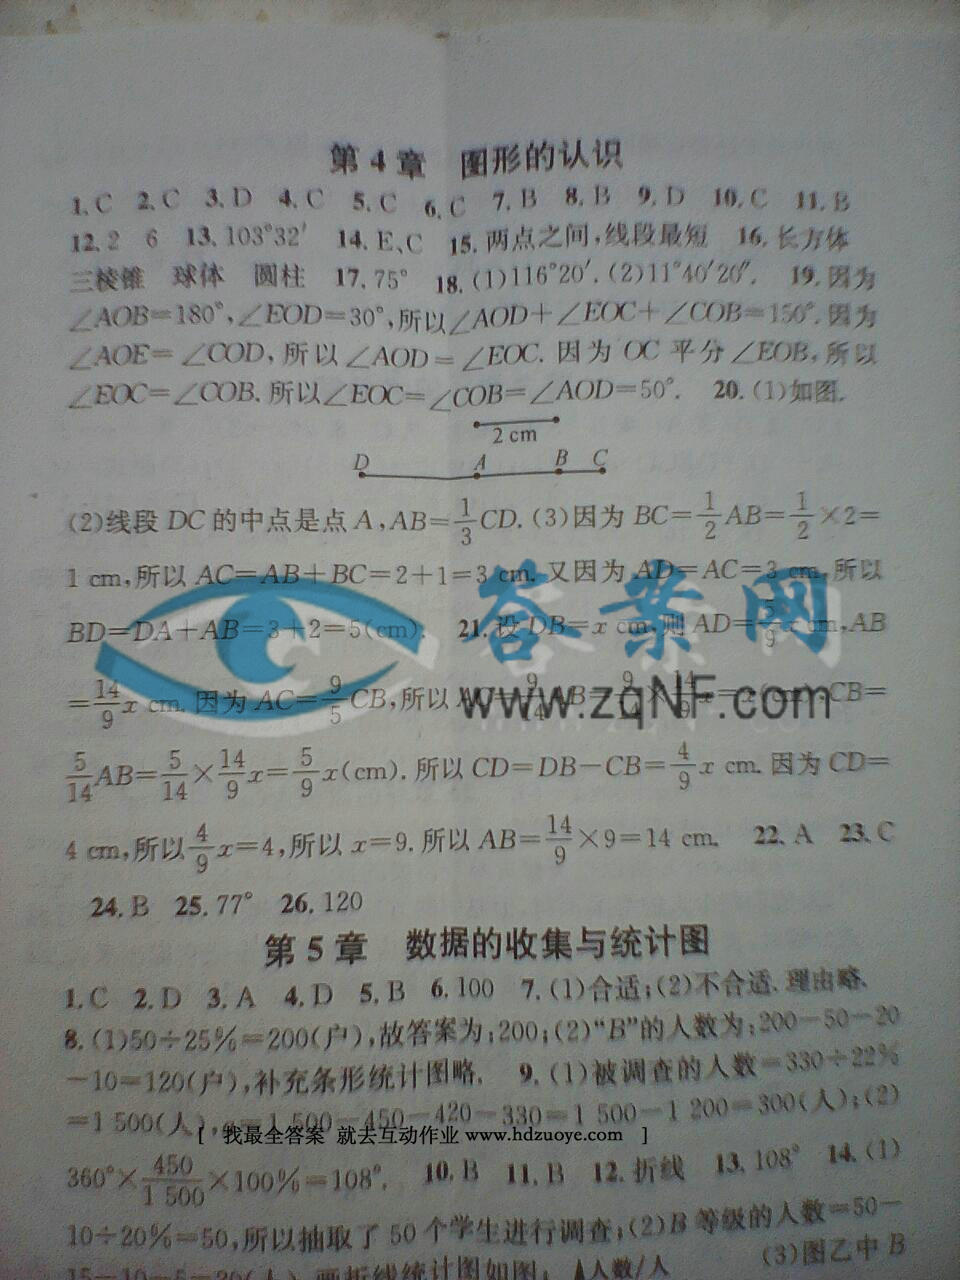 第4章 图形的认识
1. C 2. C 3. D 4. C 5. C 6. C 7. B 8. B 9. D 10. C 11. B
12. 2 6 13. 103°32′ 14. E、C 15. 两点之间,线段最短 16. 长方体
三棱锥 球体 圆柱 17. 75° 18. (1)116°20′. (2)11°40′20″. 19. 因为
∠AOB=180°,∠EOD=30°,所以∠AOD+∠EOC+∠COB=150°.因为
∠AOE=∠COD,所以∠AOD=∠EOC.因为OC平分∠EOB,所以
∠EOC=∠COB.所以∠EOC=∠COB=∠AOD=50°. 20. (1)如图.
2 cm
D A B C
(2)线段DC的中点是点A,AB=1/3CD.(3)因为BC=1/2AB=1/2×2=
1 cm,所以AC=AB+BC=2+1=3 cm.又因为AD=AC=3 cm,所以
BD=DA+AB=3+2=5(cm). 21. 设DB=x cm,则AD=5/9x cm,AB
=14/9x cm.因为AC=9/5CB,所以 CB=
答案网
www.zqNF.com
5/14AB=5/14×14/9x=5/9x(cm).所以CD=DB-CB=4/9x cm.因为CD=
4 cm,所以4/9x=4,所以x=9.所以AB=14/9×9=14 cm. 22. A 23. C
24. B 25. 77° 26. 120
第5章 数据的收集与统计图
1. C 2. D 3. A 4. D 5. B 6. 100 7. (1)合适;(2)不合适.理由略.
8. (1)50÷25%=200(户),故答案为:200;(2)“B”的人数为:200-50-20
-10=120(户),补充条形统计图略. 9. (1)被调查的人数=330÷22%
=1 500(人),a=1 500-450-420-330=1 500-1 200=300(人);(2)
[ 我最全答案 就去互动作业 www.hdzuoye.com ]
360°×450/1 500×100%=108°. 10. B 11. B 12. 折线 13. 108° 14. (1)
10÷20%=50,所以抽取了50个学生进行调查;(2)B等级的人数=50-
15-10-5=20(人),画折线统计图如图: 人数/人 (3)图乙中B